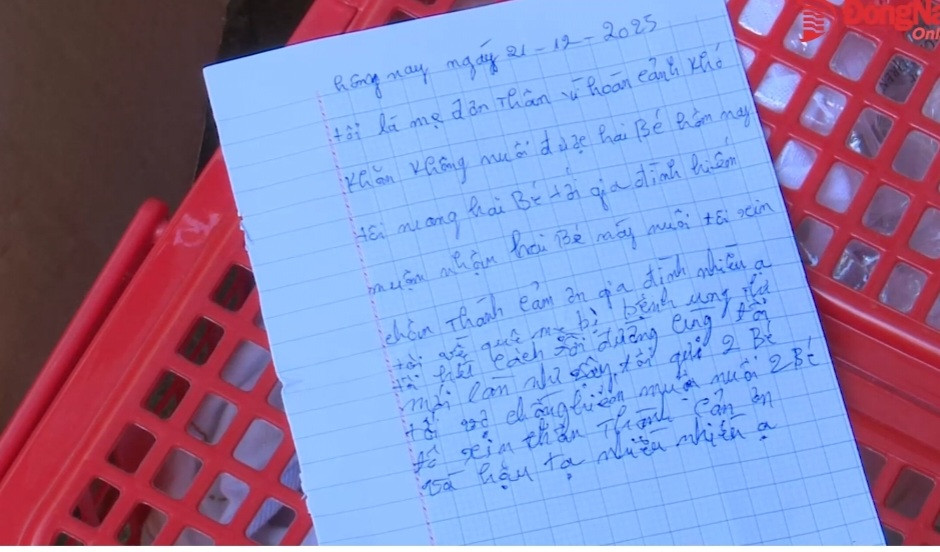 ĐồngNa
Onl
hông nay ngáy 21-12-2025
tôi là mẹ đơn Thân vì hoàn cảnh khó
khăn không nuôi được hai Bé hôm nay
tôi mang hai Bé tới gia đình hiếm
muộn nhậm hai Bé nầy nuôi tôi xin
chân Thành cảm ơn gia đình nhiều ạ
tôi về quê mẹ bị bệnh ung thư
tôi hết cách rồi đường cùng tôi
mới làm như vậy, tôi gửi 2 Bé
tôi vợ chồng hiếm muộn nuôi 2 Bé
tôi xin chân Thành cản ơn
và hậu tạ nhiều nhiều ạ